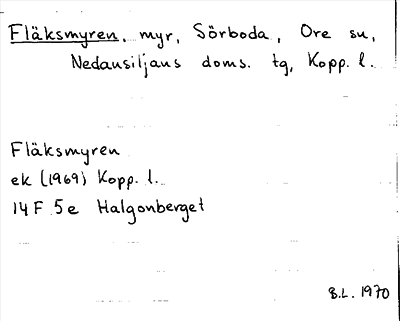 Fläksmyren, myr, Sörboda, Ore sn,
Nedansiljans doms. tg, Kopp. l.
Fläksmyren
ek (1969) Kopp. l.
14 F 5e Halgonberget
B.L. 1970